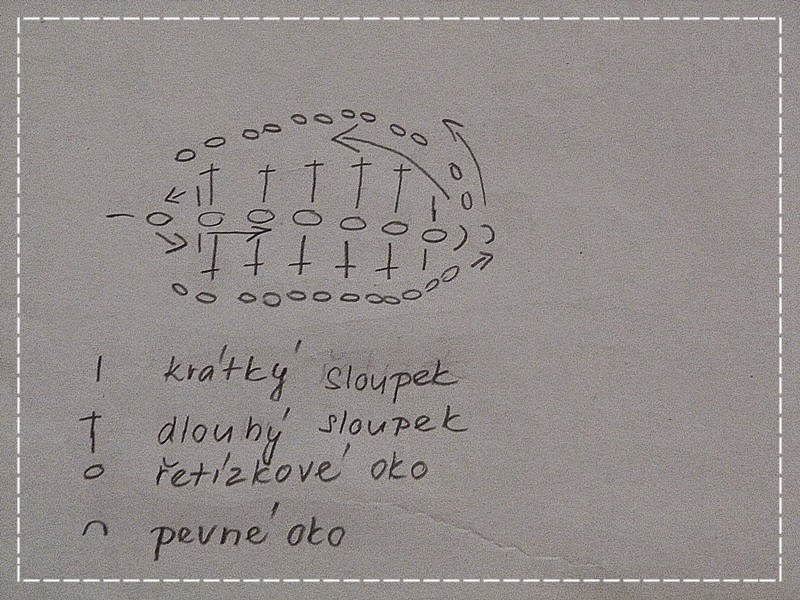 krátký sloupek
dlouhý sloupek
řetízkové oko
pevné oko